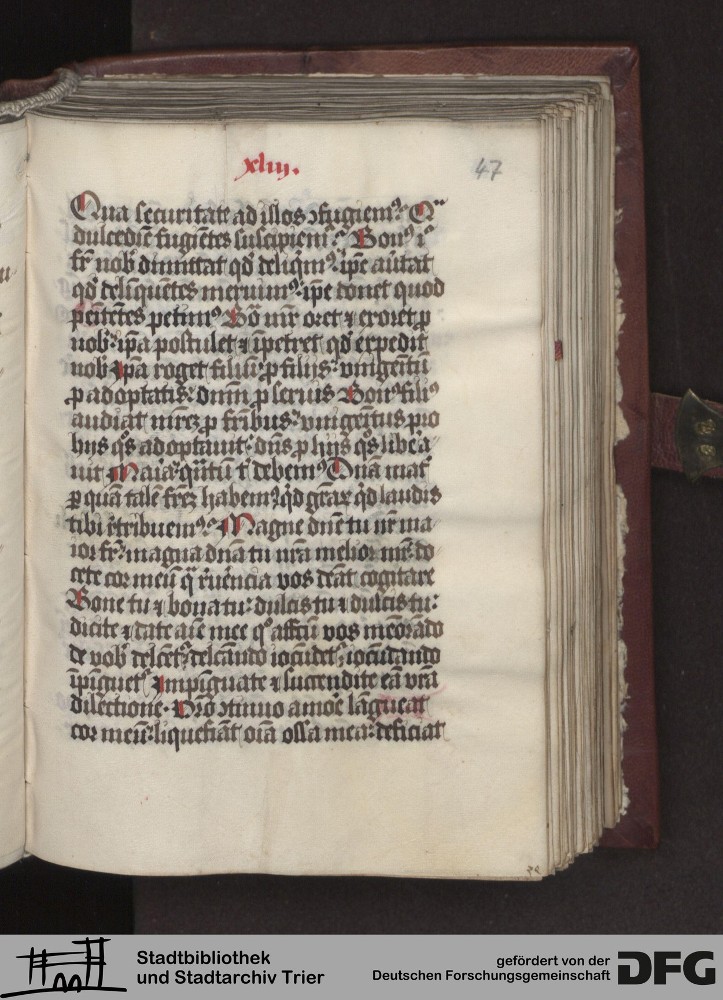 xliij.
47
Qua securitate ad illos ꝯfugiemꝰ Qͣ
dulcedīe fugiētes suscipieniꝰ Bonꝰ iᵍ
fr̄ nob̄ dimittat qd̄ deliqimꝰ ip̄e au̇tat
qd̄ delīquētes meruimꝰ ip̄e donet quod
penitētes petimꝰ Bōa mr̄ oret ⁊ exoret ꝓ
nob̄ ip̄a postulet ⁊ īpetret qd̄ expedit
nob̄ Ip̄a roget filiū ꝓ filijs vnigenitū
ꝓ adoptatis dn̄m ꝓ seruis Bonꝰ filiꝰ
audiat mr̄eꝫ ꝓ fr̄ibus vnigenitus pro
hijs q̊s adoptauit dn̄s ꝓ hijs q̊s liberā
uit Maria q̄ntū t̄ debemꝰ Dn̄a mat̄
ꝑ quā talē fr̄eꝫ habemꝰ qd̄ gr̄aꝝ qd̄ laudis
tibi r̄tribuemꝰ Magne dn̄e tu nr̄ ma
ior fr̄ magna dn̄a tu nr̄a melior mr̄ do
cete cor meū q̄ r̄uerēcia vos debeat cogitare
Bone tu ⁊ bona tu dulcis tu ⁊ dulcis tu
dicite ⁊ date aīe mee q̊ affc̄u vos memorādo
de vob̄ delc̄et delc̄ando iocūdet iocūdando
īpīguet Impīguate ⁊ succendite eā vr̄a
dilectione. Vr̄o ꝯtinuo amoꝛe lāgueat
cor meū liquefiāt oīa ossa mea deficiat
Stadtbibliothek
und Stadtarchiv Trier
gefördert von der
Deutschen Forschungsgemeinschaft
DFG